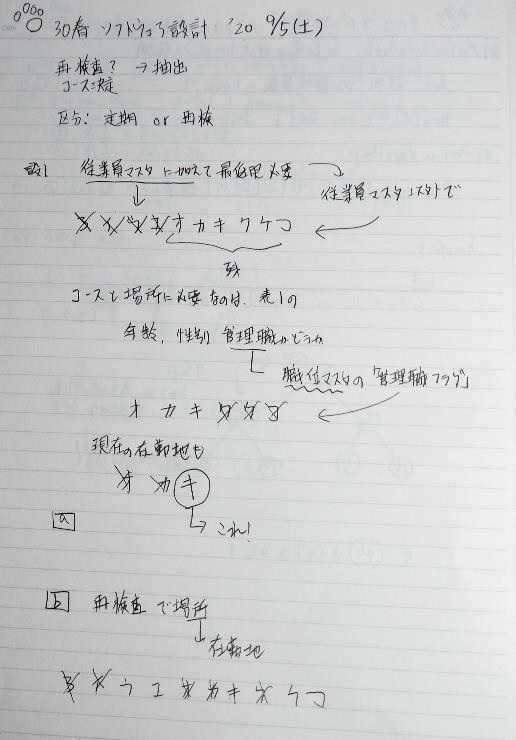 30春 ソフトウェア設計 '20 9/5(土)
再検査? → 抽出
コース決定
区分: 定期 or 再検
設1 従業員マスタに加えて最低限必要
従業員マスタ
ア イ ウ エ オ カ キ ク ケ コ
残
コースと場所に必要なのは、表1の
年齢、性別 管理職かどうか
職位マスタの「管理職フラグ」
オ カ キ ク ケ コ
現在の在勤地も
オ カ キ
a
→ これ!
b 再検査で場所
在勤地
ア イ ウ エ オ カ キ ク ケ コ